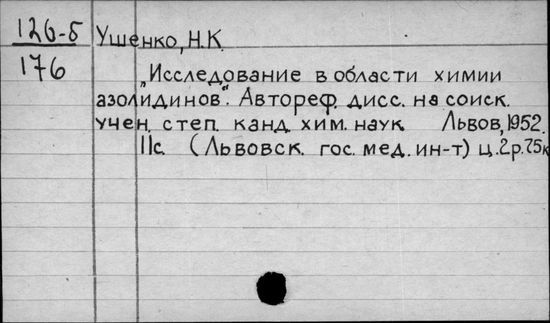 126-б
176
Ушенко, Н.К.
„Исследование в области химии
азолидинов". Автореф. дисс. на соиск.
учен. степ. канд. хим. наук Львов, 1952.
11с. (Львовск. гос. мед. ин-т) ц. 2р. 75к